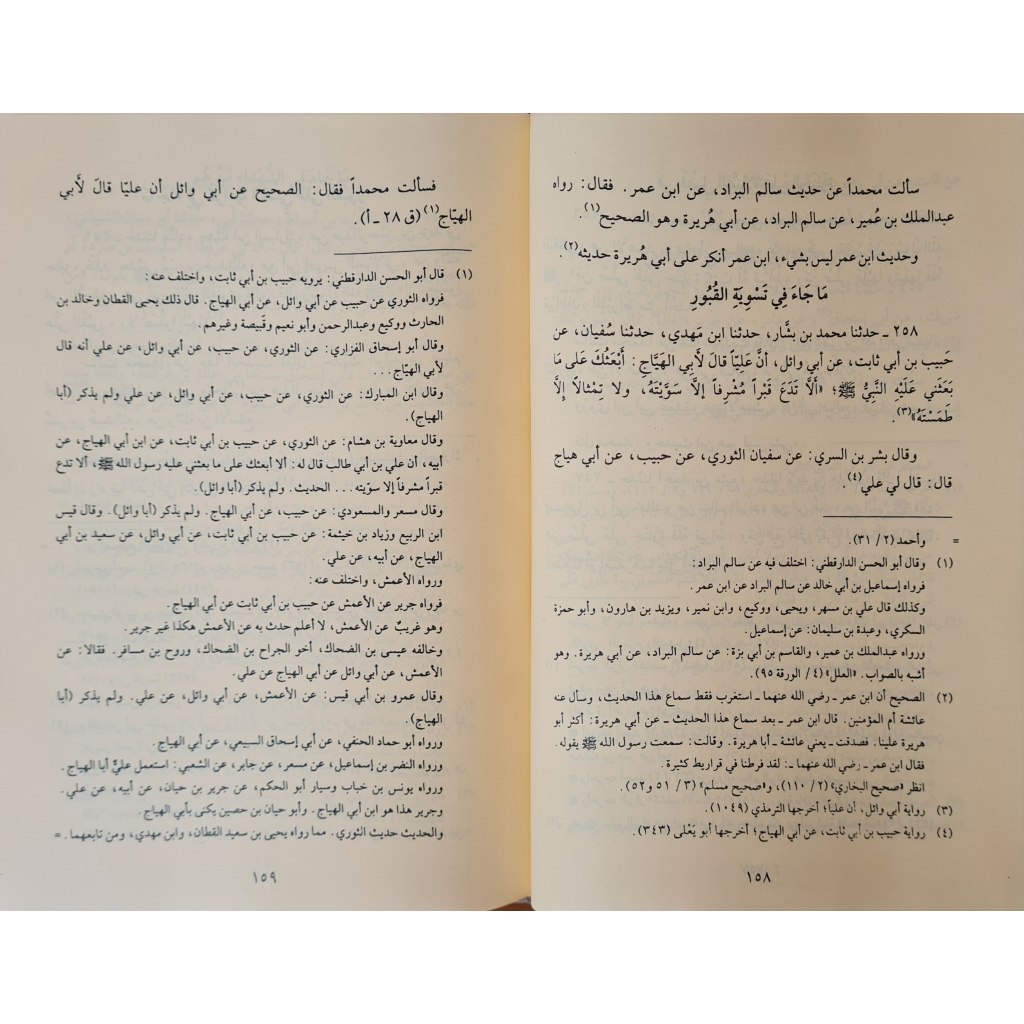 سألت محمداً عن حديث سالم البراد، عن ابن عمر. فقال: رواه
عبدالملك بن عُمير، عن سالم البراد، عن أبي هُريرة وهو الصحيح(١).
وحديث ابن عمر ليس بشيء، ابن عمر أنكر على أبي هُريرة حديثه(٢).
مَا جَاءَ فِي تَسْوِيَةِ القُبُورِ
٢٥٨ ـ حدثنا محمد بن بشَّار، حدثنا ابن مَهدي، حدثنا سُفيان، عن
حَبيب بن أبي ثابت، عن أبي وائل، أنَّ عَلِيّاً قالَ لأَبِي الهَيَّاجِ: أَبْعَثُكَ عَلى مَا
بَعَثَني عَلَيْهِ النَّبِيُّ ﷺ؛ «أَلَّا تَدَعَ قَبْراً مُشْرِفاً إلَّا سَوَّيْتَهُ، ولا تِمْثالاً إِلَّا
طَمَسْتَهُ»(٣).
وقال بشر بن السري: عن سفيان الثوري، عن حبيب، عن أبي هياج
قال: قال لي علي(٤).
= وأحمد (٢/ ٣١).
(١) وقال أبو الحسن الدارقطني: اختلف فيه عن سالم البراد:
فرواه إسماعيل بن أبي خالد عن سالم البراد عن ابن عمر.
وكذلك قال علي بن مسهر، ويحيى، ووكيع، وابن نمير، ويزيد بن هارون، وأبو حمزة
السكري، وعبدة بن سليمان: عن إسماعيل.
ورواه عبدالملك بن عمير، والقاسم بن أبي بزة: عن سالم البراد، عن أبي هريرة. وهو
أشبه بالصواب. «العلل» (٤/ الورقة ٩٥).
(٢) الصحيح أن ابن عمر ـ رضي الله عنهما ـ استغرب فقط سماع هذا الحديث، وسأل عنه
عائشة أم المؤمنين. قال ابن عمر ـ بعد سماع هذا الحديث ـ عن أبي هريرة: أكثر أبو
هريرة علينا. فصدقت ـ يعني عائشة ـ أبا هريرة. وقالت: سمعت رسول الله ﷺ يقوله.
فقال ابن عمر ـ رضي الله عنهما ـ: لقد فرطنا في قراريط كثيرة.
انظر «صحيح البخاري» (٢/ ١١٠)، و«صحيح مسلم» (٣/ ٥١ و٥٢).
(٣) رواية أبي وائل، أن علياً؛ أخرجها الترمذي (١٠٤٩).
(٤) رواية حبيب بن أبي ثابت، عن أبي الهياج؛ أخرجها أبو يَعْلى (٣٤٣).
١٥٨
فسألت محمداً فقال: الصحيح عن أبي وائل أن عليّا قالَ لأَبي
الهيّاج(١) (ق ٢٨ ـ أ).
(١) قال أبو الحسن الدارقطني: يرويه حبيب بن أبي ثابت، واختلف عنه:
فرواه الثوري عن حبيب عن أبي وائل، عن أبي الهياج. قال ذلك يحيى القطان وخالد بن
الحارث ووكيع وعبدالرحمن وأبو نعيم وقَبيصة وغيرهم.
وقال أبو إسحاق الفزاري: عن الثوري، عن حبيب، عن أبي وائل، عن علي أنه قال
لأبي الهيّاج...
وقال ابن المبارك: عن الثوري، عن حبيب، عن أبي وائل، عن علي ولم يذكر (أبا
الهياج).
وقال معاوية بن هشام: عن الثوري، عن حبيب بن أبي ثابت، عن ابن أبي الهياج، عن
أبيه، أن علي بن أبي طالب قال له: ألا أبعثك على ما بعثني عليه رسول الله ﷺ، ألا تدع
قبراً مشرفاً إلا سوّيته... الحديث. ولم يذكر (أبا وائل).
وقال مسعر والمسعودي: عن حبيب، عن أبي الهياج. ولم يذكر (أبا وائل). وقال قيس
ابن الربيع وزياد بن خيثمة: عن حبيب بن أبي ثابت، عن أبي وائل، عن سعيد بن أبي
الهياج، عن أبيه، عن علي.
ورواه الأعمش، واختلف عنه:
فرواه جرير عن الأعمش عن حبيب بن أبي ثابت عن أبي الهياج.
وهو غريبٌ عن الأعمش، لا أعلم حدث به عن الأعمش هكذا غير جرير.
وخالفه عيسى بن الضحاك، أخو الجراح بن الضحاك، وروح بن مسافر. فقالا: عن
الأعمش، عن أبي وائل عن أبي الهياج عن علي.
وقال عمرو بن أبي قيس: عن الأعمش، عن أبي وائل، عن علي. ولم يذكر (أبا
الهياج).
ورواه أبو حماد الحنفي، عن أبي إسحاق السبيعي، عن أبي الهياج.
ورواه النضر بن إسماعيل، عن مسعر، عن جابر، عن الشعبي: استعمل عليٌّ أبا الهياج.
ورواه يونس بن خباب وسيار أبو الحكم، عن جرير بن حيان، عن أبيه، عن علي.
وجرير هذا هو ابن أبي الهياج. وأبو حيان بن حصين يكنى بأبي الهياج.
والحديث حديث الثوري. مما رواه يحيى بن سعيد القطان، وابن مهدي، ومن تابعهما. =
١٥٩